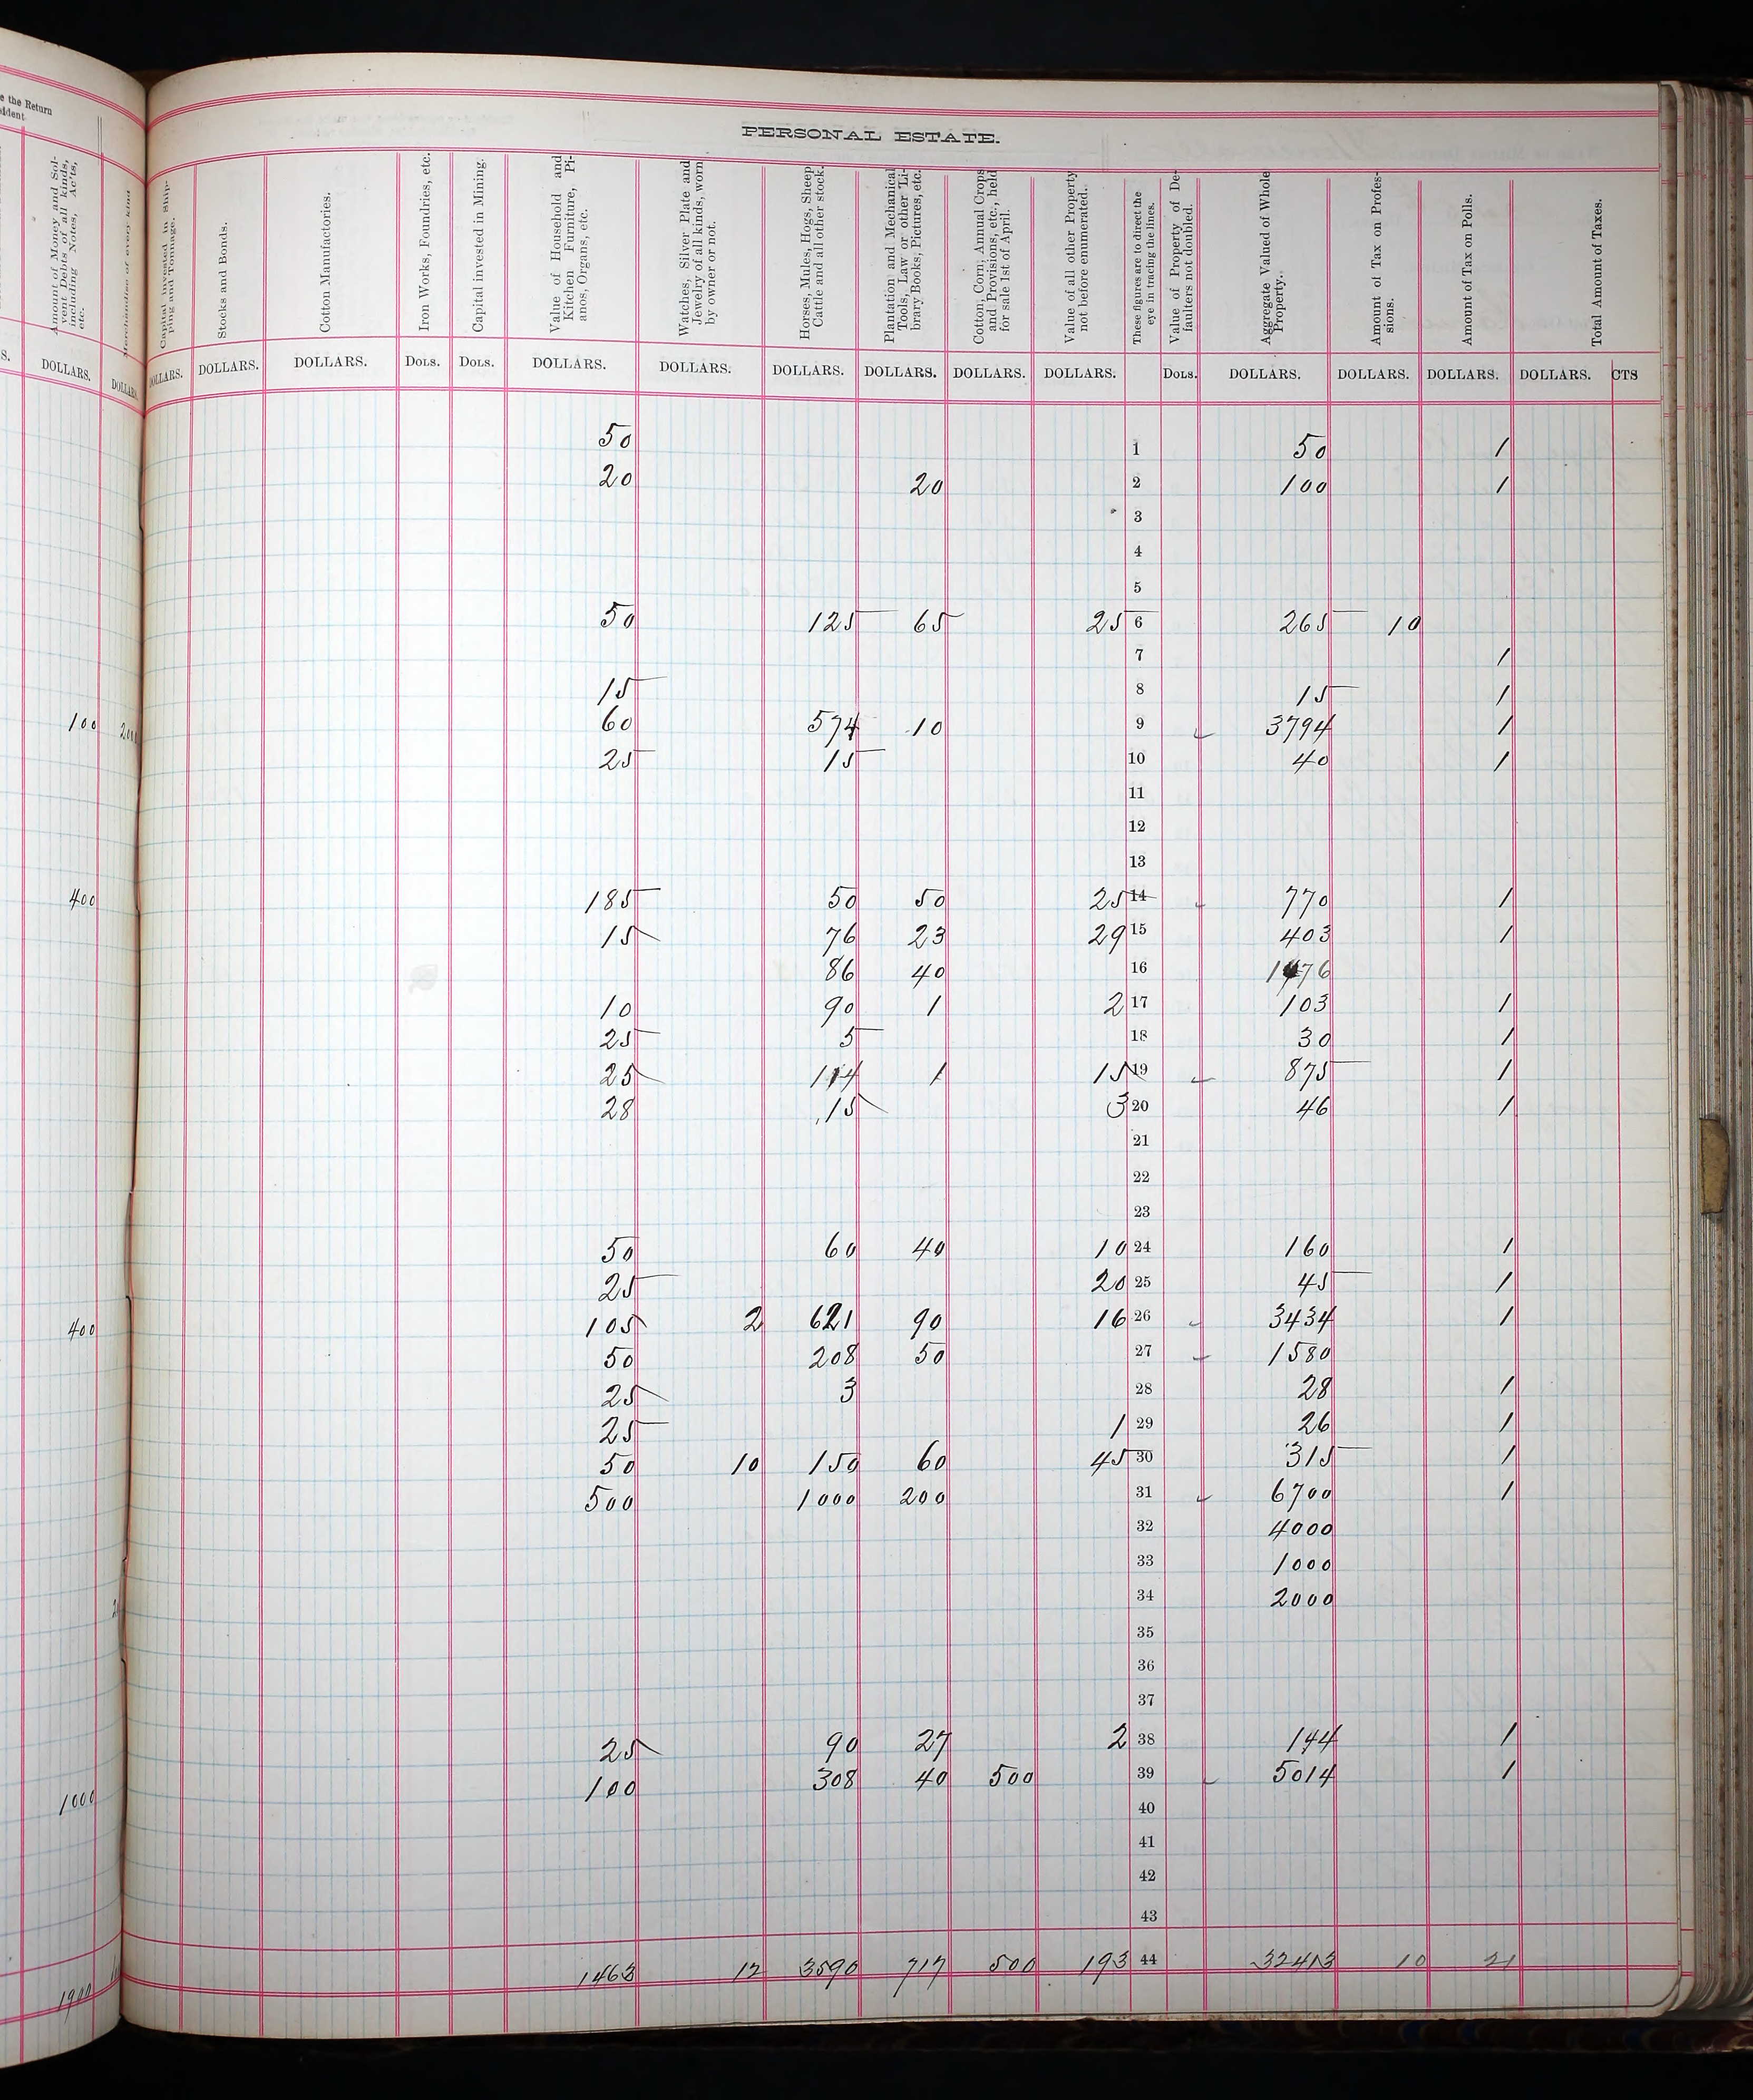 e the Return
sident
PERSONAL ESTATE.
Amount of Money and Solvent Debts of all kinds, including Notes, Ac'ts, etc.
Merchandise of every kind
Capital invested in Shipping and Tonnage.
Stocks and Bonds.
Cotton Manufactories.
Iron Works, Foundries, etc.
Capital invested in Mining.
Value of Household and Kitchen Furniture, Pianos, Organs, etc.
Watches, Silver Plate and Jewelry of all kinds, worn by owner or not.
Horses, Mules, Hogs, Sheep Cattle and all other stock.
Plantation and Mechanical Tools, Law or other Library Books, Pictures, etc.
Cotton, Corn, Annual Crops and Provisions, etc., held for sale 1st of April.
Value of all other Property not before enumerated.
These figures are to direct the eye in tracing the lines.
Value of Property of Defaulters not doubled.
Aggregate Valued of Whole Property.
Amount of Tax on Professions.
Amount of Tax on Polls.
Total Amount of Taxes.
S. DOLLARS. DOLLARS. DOLLARS. DOLLARS. DOLLARS. DOLS. DOLS. DOLLARS. DOLLARS. DOLLARS. DOLLARS. DOLLARS. DOLLARS. DOLS. DOLLARS. DOLLARS. DOLLARS. DOLLARS. CTS
50 1 50 1
20 20 2 100 1
3
4
5
50 125 65 25 6 265 10
7 1
15 8 15 1
100 2000 60 574 10 9 3794 1
25 15 10 40 1
11
12
13
400 185 50 50 25 14 770 1
15 76 23 29 15 403 1
86 40 16 76
10 90 1 2 17 103 1
25 5 18 30 1
25 114 1 15 19 875 1
28 15 3 20 46 1
21
22
23
50 60 40 10 24 160 1
25 20 25 45 1
400 105 2 621 90 16 26 3434 1
50 208 50 27 1580
25 3 28 28 1
25 1 29 26 1
50 10 150 60 45 30 315 1
500 1000 200 31 6700 1
32 4000
33 1000
34 2000
35
36
37
25 90 27 2 38 144 1
1000 100 308 40 500 39 5014 1
40
41
42
43
1900 1463 12 3590 717 500 193 44 32413 10 21